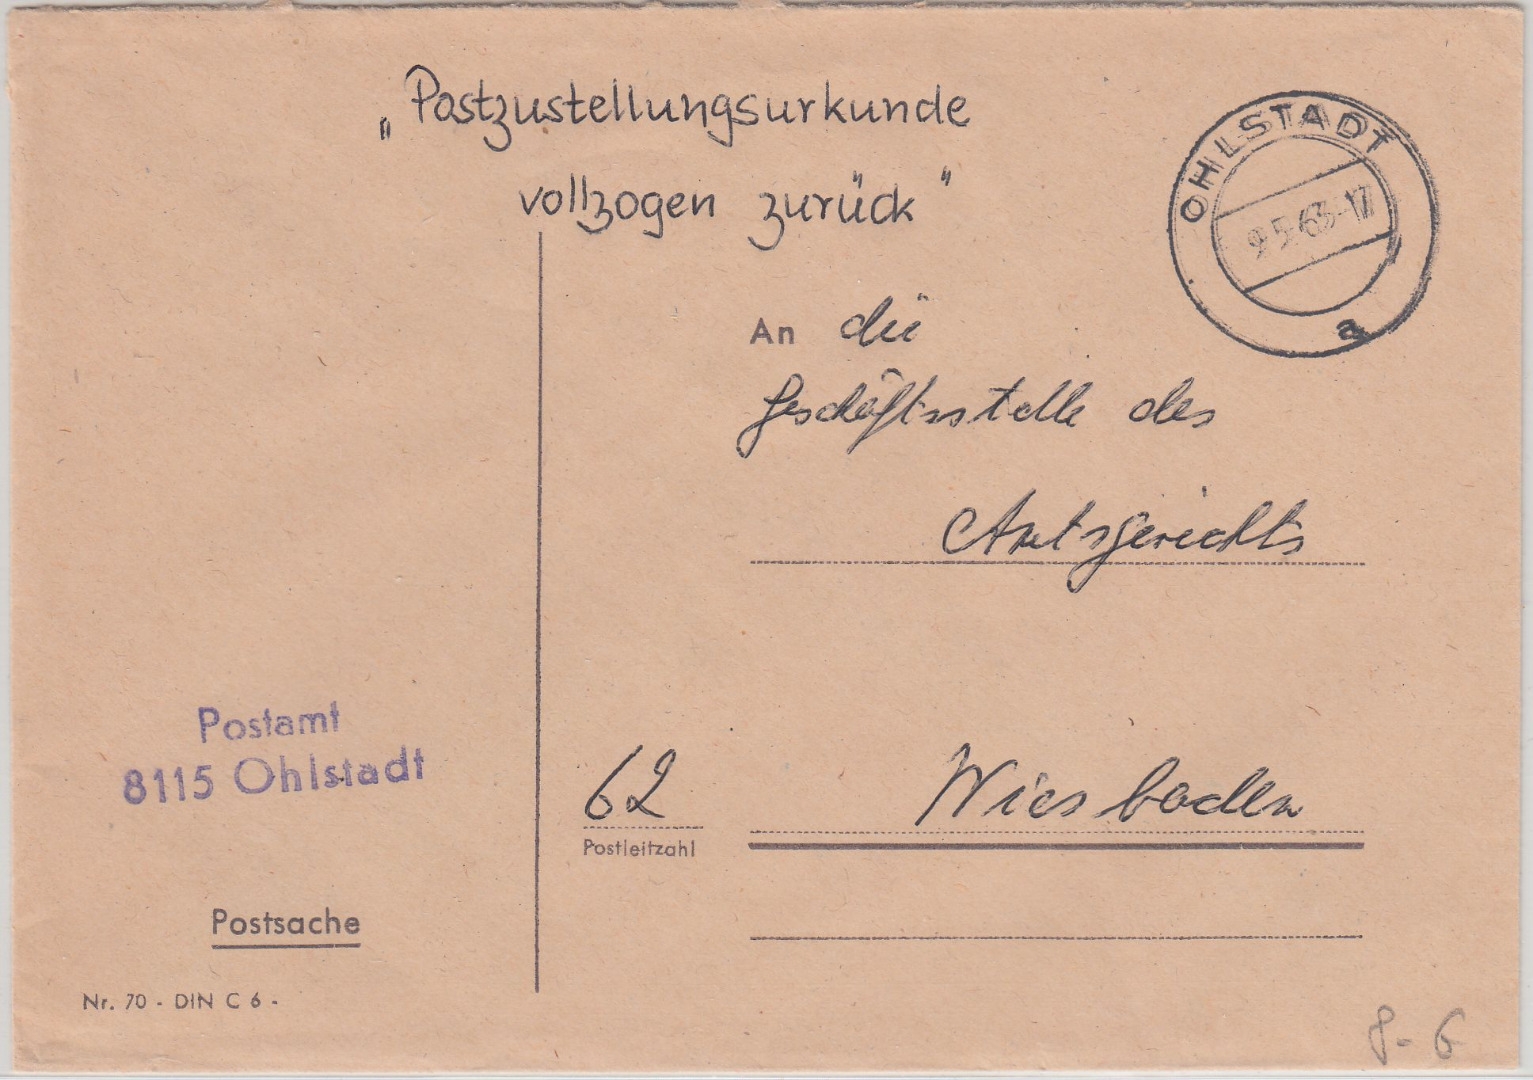 „Postzustellungsurkunde
vollzogen zurück"
OHLSTADT
9.5.63-17
a
An die
Geschäftsstelle des
Amtsgerichts
Postamt
8115 Ohlstadt
62 Wiesbaden
Postleitzahl
Postsache
Nr. 70 - DIN C 6 -